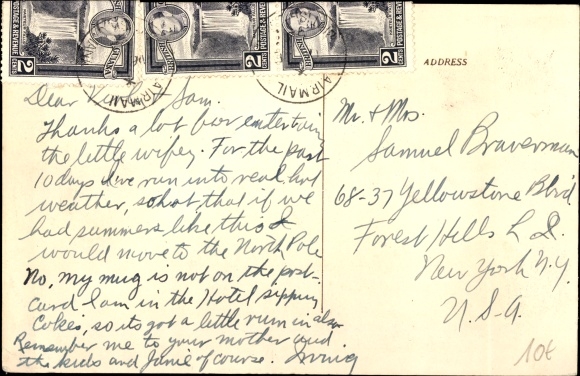 POSTAGE & REVENUE
BRITISH GUIANA
2 CENTS
POSTAGE & REVENUE
BRITISH
2 CENTS
POSTAGE & REVENUE
2
AIRMAIL
AIRMAIL
ADDRESS
Dear Sam.
Thanks a lot for entertaining
the little wifey. For the past
10 days I've run into real hot
weather, so hot that if we
had summers like this I
would move to the North Pole
No, my mug is not on the post-
card I am in the Hotel sipping
Cokes, so its got a little rum in also
Remember me to your mother and
the kids and Janie of course. Irving
Mr. & Mrs.
Samuel Braverman
68-37 Yellowstone Blvd
Forest Hills L I.
New York N.Y.
U.S.A.
10¢